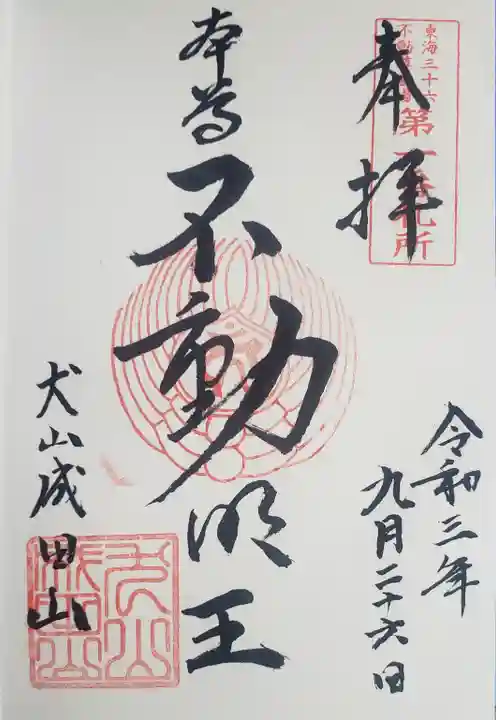 東海三十六
不動尊霊場
第一番札所
奉拝
令和三年
九月二十六日
本尊
不動明王
犬山成田山